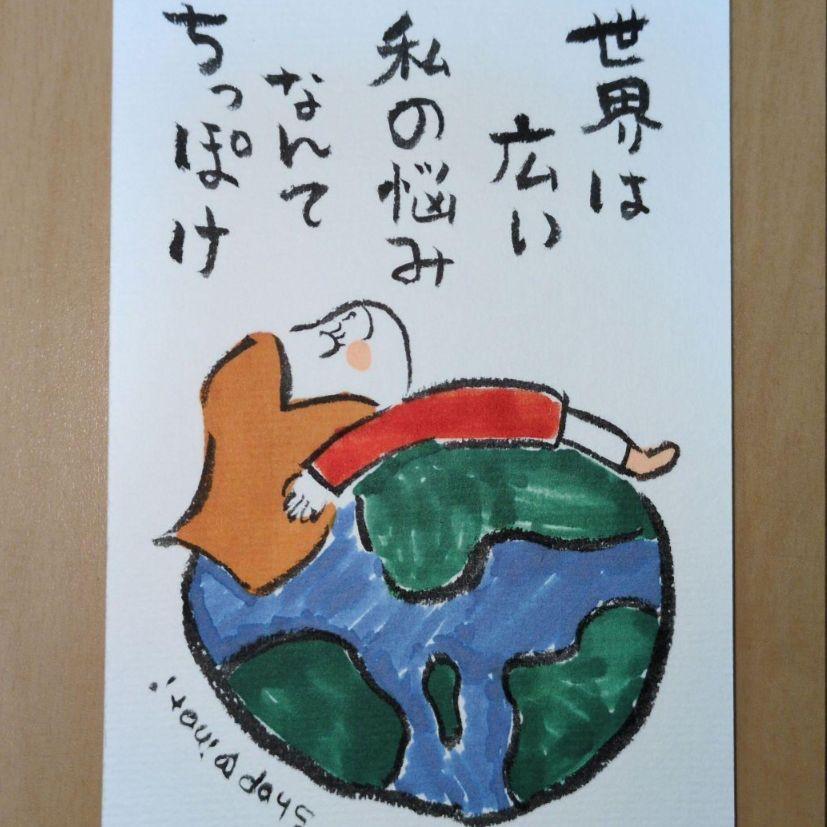 世界は
広い
私の悩み
なんて
ちっぽけ
days